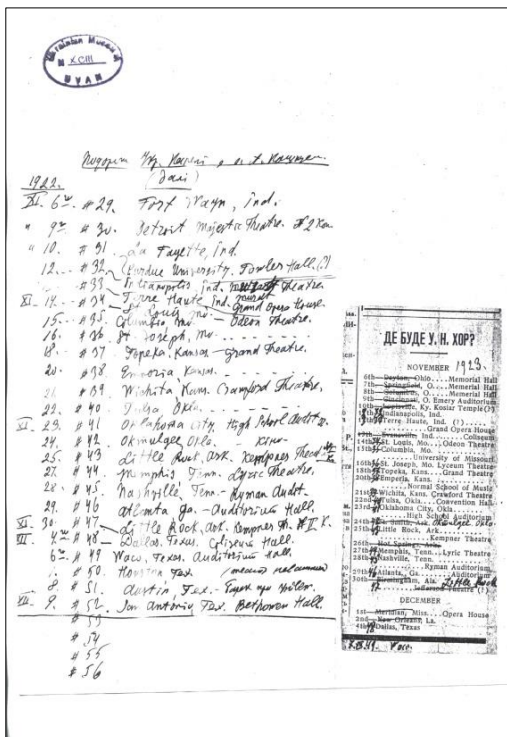 Ukrainian Museum
N XCIII
UVAN
1922.
XI. 6 #29. Fort Wayn, Ind.
" 9 #30. Detroit Majestic Theatre.
" 10. #31 La Fayette, Ind.
12... #32 Purdue University. Fowler Hall. (?)
#33 Indianapolis, Ind. Theatre.
XI. 14 #34 Terre Haute, Ind. Grand Opera House.
15. #35 Columbia, Mo. Odeon Theatre.
16. #36 St. Joseph, Mo.
18. #37 Topeka, Kansas - Grand Theatre.
20. #38 Emporia Kansas.
21. #39 Wichita, Kans. Crawford Theatre.
22. #40 Tulsa, Okla.
XI. 23. #41 Oklahoma City. High School Audit
24. #42 Okmulgee Okla.
25. #43 Little Rock, Ark. Kempner Theat
27. #44 Memphis Tenn. Lyric Theatre.
28. #45 Nashville, Tenn. - Ryman Audit.
29. #46 Atlanta Ga. - Auditorium Hall.
XI. 30. #47 Little Rock, Ark. Kempner Th. #II K.
XII. 4 #48 Dallas, Texas. Coliseum Hall.
6 #49 Waco, Texas. Auditorium Hall.
#50 Houston Tex.
8. #51. Austin, Tex.
XII. 9. #52. San Antonio Tex. Bethoven Hall.
#53
#54
#55
#56
ДЕ БУДЕ У. Н. ХОР?
NOVEMBER 1923.
6th Dayton, Ohio .... Memorial Hall
7th Springfield, O. .... Memorial Hall
8th Columbus, O. .... Memorial Hall
9th Cincinnati, O. Emery Auditorium
10th Louisville, Ky. Kosiar Temple (?)
Indianapolis, Ind.
Terre Haute, Ind. (?)
Grand Opera House
Evansville, Ind. .... Coliseum
St. Louis, Mo. .. Odeon Theatre
15th Columbia, Mo.
University of Missouri
St. Joseph, Mo. Lyceum Theatre
Topeka, Kans. .. Grand Theatre
20th Emperia, Kans.
Normal School of Music
21st Wichita, Kans. Crawford Theatre
22nd Tulsa, Okla. .. Convention Hall
23rd Oklahoma City, Okla.
High School Auditorium
24th Ft. Smith, Ark. Okmulgee Okla
25th Little Rock, Ark.
Kempner Theatre
26th Hot Spring, Ark.
27th Memphis, Tenn. .. Lyric Theatre
28th Nashville, Tenn.
Ryman Auditorium
29th Atlanta, Ga. .... Auditorium
30th Birmingham, Ala. Little Rock
Jefferson Theatre (?)
DECEMBER
1st Meridian, Miss. ... Opera House
2nd New Orleans, La.
4th Dallas, Texas